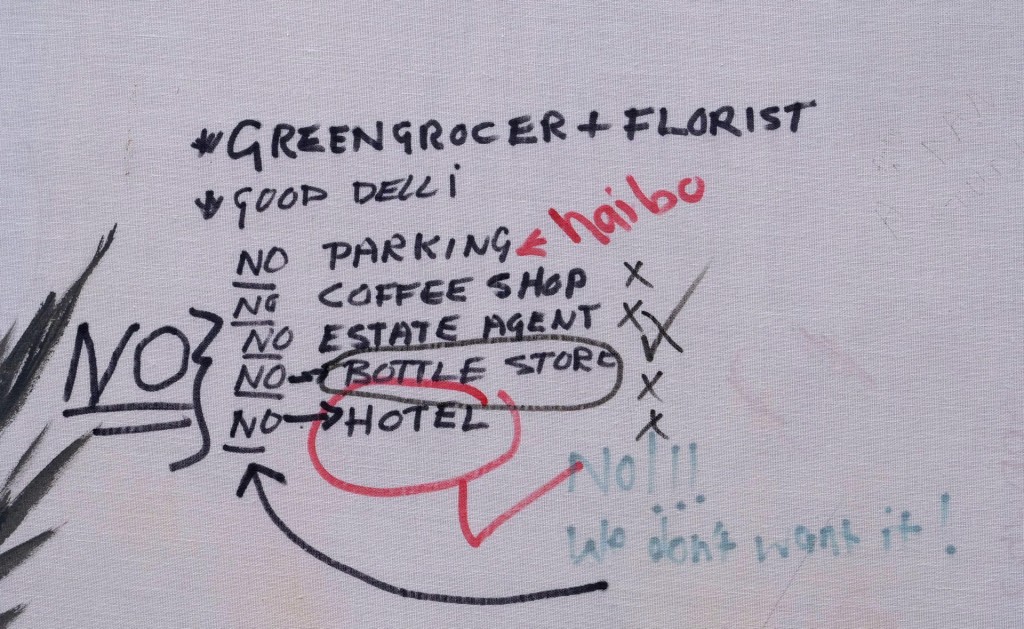 * GREENGROCER + FLORIST
* GOOD DELLI
NO PARKING haibo
NO COFFEE SHOP X
NO ESTATE AGENT X
NO BOTTLE STORE X
NO HOTEL X
NO
No!!!
We don't want it!